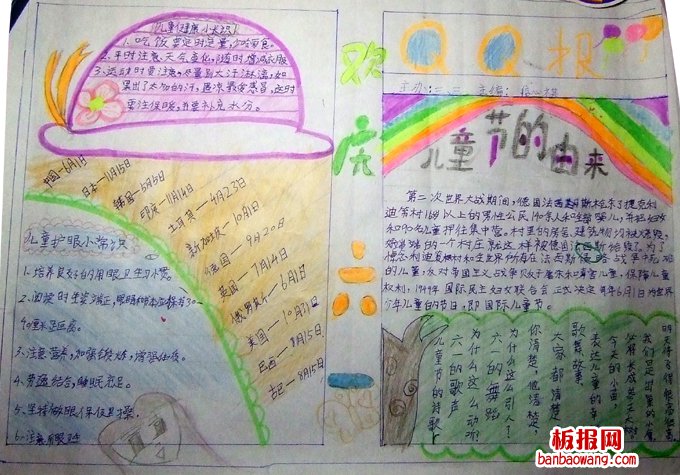 儿童健康小常识
1、吃饭要定时定量，少吃零食。
2、平时注意天气变化，随时增减衣服
3、运动时要注意，尽量别大汗淋漓，如
果出了太多的汗，
要注保暖，并要补充水分。
中国—6月1日
日本—11月15日
韩国—5月5日
印度—11月14日
土耳其—4月23日
新加坡—10月1日
德国—9月20日
英国—7月14日
俄罗斯—6月1日
美国—10月31日
巴西—8月15日
古巴—8月15日
儿童护眼小常识
1、培养良好的用眼卫生习惯。
2、阅读时坐姿端正，眼睛
厘米远距离。
3、注意营养，加强锻炼，增强体质。
4、劳逸结合，睡眠充足。
5、坚持做眼保健操。
6、注意用眼卫生
欢度六一
QQ报
主办：二、三 主编：
儿童节的由来
第二次世界大战期间，德国法西斯枪杀了捷克利
迪策村16岁以上的男性公民140余人和全部婴儿，并把妇女
和90名儿童押往集中营。村里的房舍、建筑物均被烧毁，
好端端的一个村庄就这样被德国法西斯给毁了。为了
悼念利迪策村和全世界所有在法西斯侵略战争中死难
的儿童，反对帝国主义战争贩子屠杀和毒害儿童，保障儿童
权利，1949年国际民主妇女联合会正式决定每年6月1日为世界
少年儿童的节日，即国际儿童节。
儿童节的诗歌
六一的歌声
为什么这么动听？
六一的舞蹈
为什么这么引人？
你清楚，他清楚，
大家都清楚
歌舞故事，
表达儿童的幸
今天的小苗，
必将长成参天大树
我们是出巢的小鹰，
的天得飞得很高很高
板报网
banbaowang.com